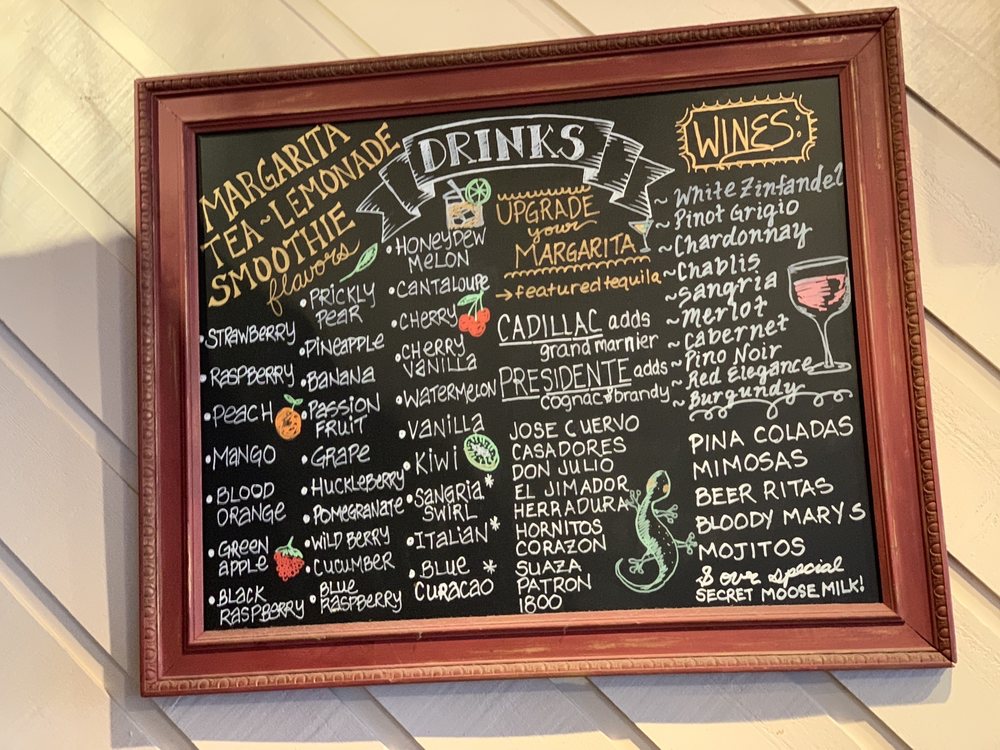 DRINKS
MARGARITA
TEA ~ LEMONADE
SMOOTHIE
flavors
• STRAWBERRY
• RASPBERRY
• PEACH
• MANGO
• BLOOD
ORANGE
• GREEN
APPLE
• BLACK
RASPBERRY
• PRICKLY
PEAR
• PINEAPPLE
• BANANA
• PASSION
FRUIT
• GRAPE
• HUCKLEBERRY
• POMEGRANATE
• WILD BERRY
• CUCUMBER
• BLUE
RASPBERRY
• HONEYDEW
MELON
• CANTALOUPE
• CHERRY
• CHERRY
VANILLA
• WATERMELON
• VANILLA
• KIWI
• SANGRIA*
SWIRL
• ITALIAN*
• BLUE *
CURACAO
UPGRADE
your
MARGARITA
→ featured tequila
CADILLAC adds
grand marnier
PRESIDENTE adds
cognac & brandy
JOSE CUERVO
CASADORES
DON JULIO
EL JIMADOR
HERRADURA
HORNITOS
CORAZON
SUAZA
PATRON
1800
WINES:
~ White Zinfandel
~ Pinot Grigio
~ Chardonnay
~ Chablis
~ Sangria
~ Merlot
~ Cabernet
~ Pino Noir
~ Red Elegance
~ Burgundy
PINA COLADAS
MIMOSAS
BEER RITAS
BLOODY MARYS
MOJITOS
& our special
SECRET MOOSE MILK!